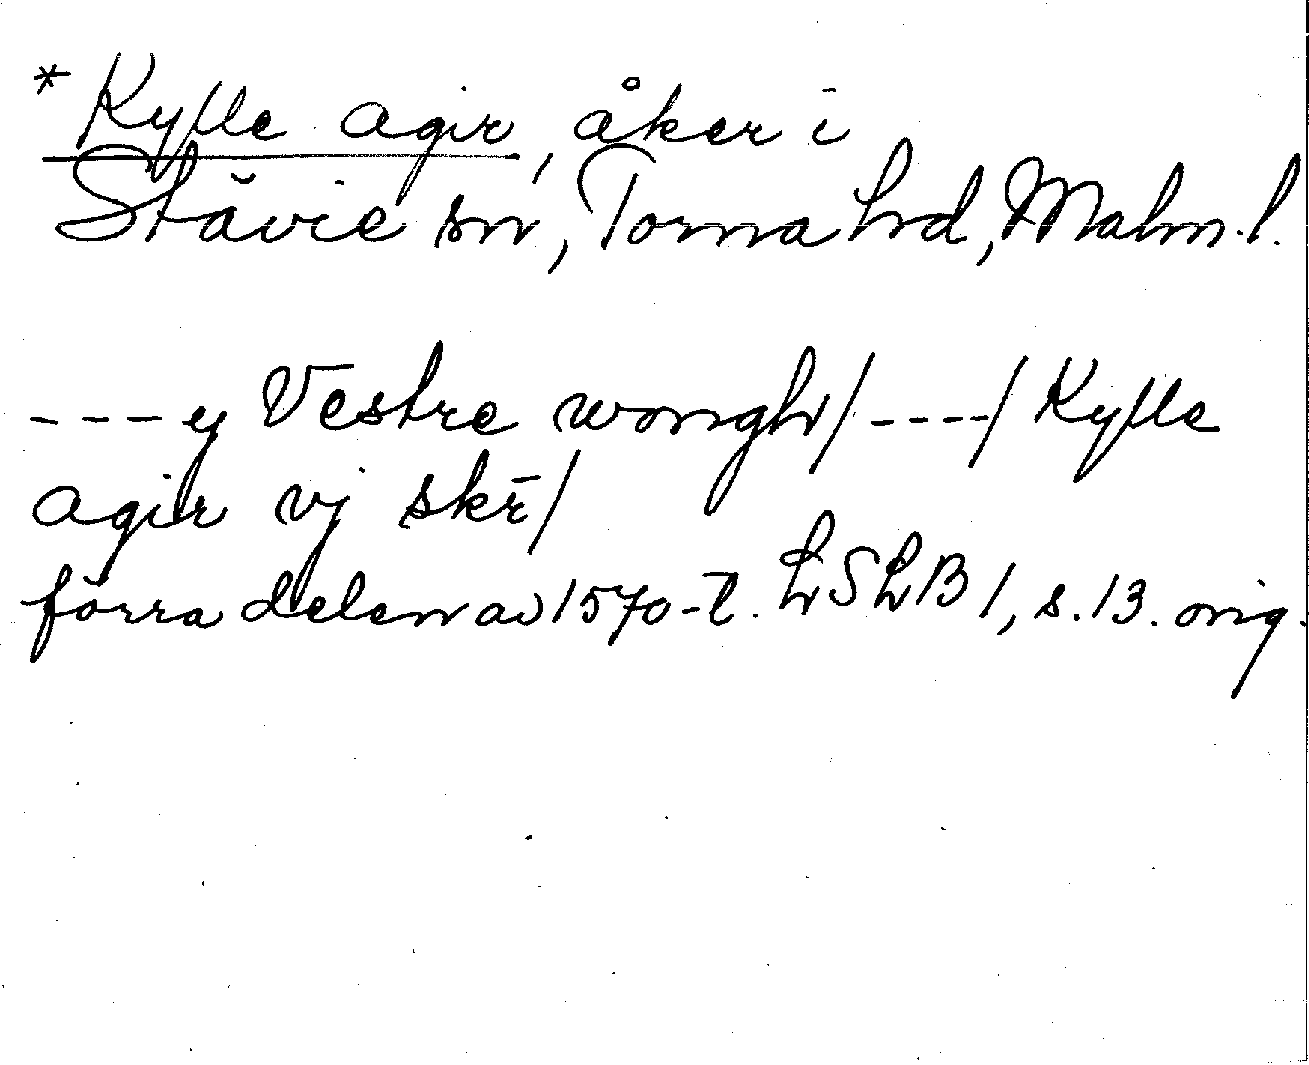 * Kylle agir, åker i
Stävie sn, Torna hd, Malm. l.
- - - y Vestre wongh/ - - - -/ Kylle
agir vj skr̄/
förra delen av 1570-t. LSLB 1, s. 13. orig.